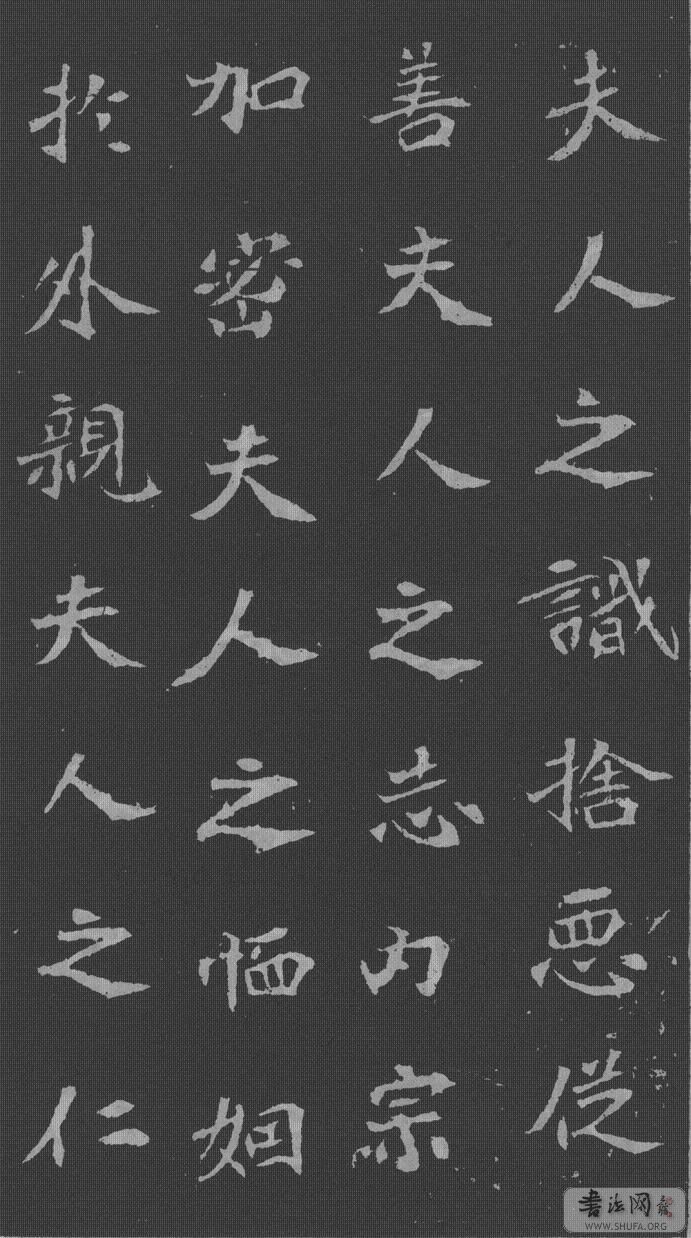 夫人之識捨惡從
善夫人之志内宗
加密夫人之恤姻
於外親夫人之仁
書法网
WWW.SHUFA.ORG